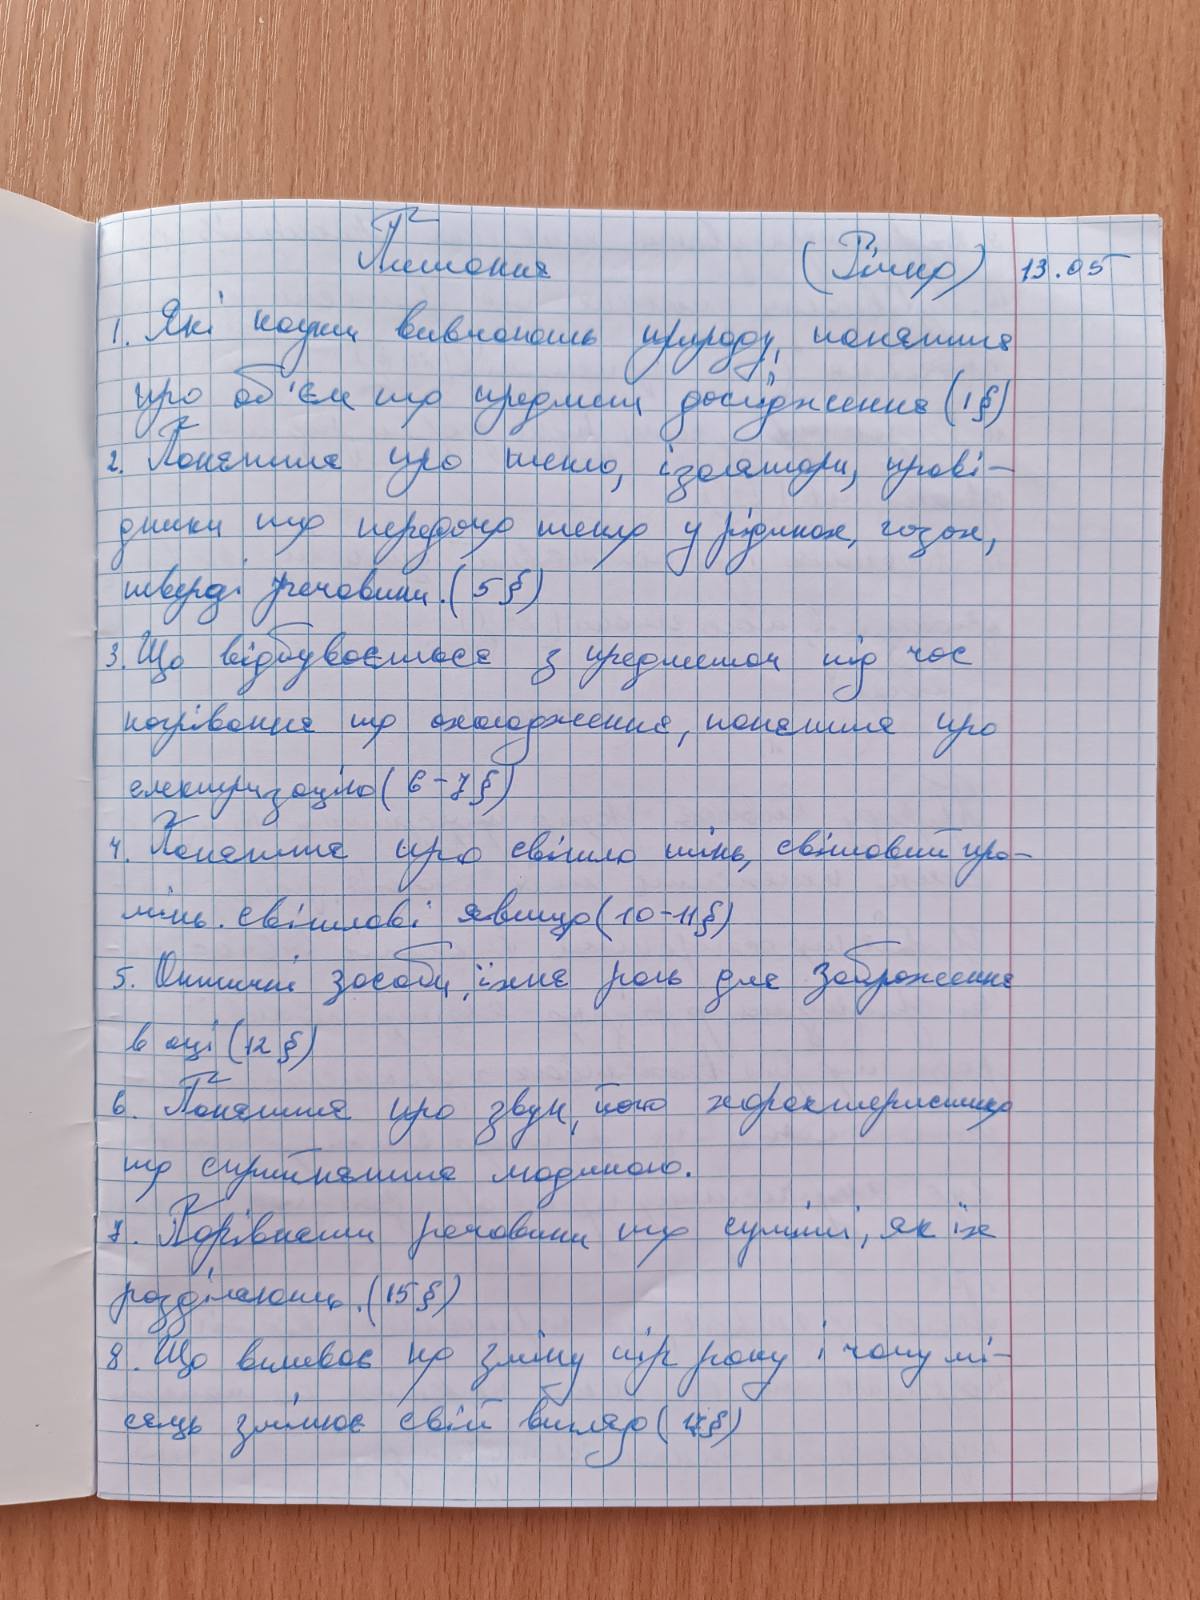 Питання (Річна) 13.05
1. Які науки вивчають природу, поняття
про об'єм та предмет дослідження (1§)
2. Поняття про тепло, ізолятори, прові-
дники та передача тепла у рідинах, газах,
тверді речовини. (5§)
3. Що відбувається з предметом під час
нагрівання та охолодження, поняття про
електризацію (6-7§)
4. Поняття про світло тінь, світловий про-
мінь. світлові явища (10-11§)
5. Оптичні засоби, їхня роль для зображення
в оці (12§)
6. Поняття про звук, його характеристика
та сприйняття людиною.
7. Порівняти речовини та суміші, як їх
розділяють. (15§)
8. Що впливає на зміну пір року і чому мі-
сяць змінює свій вигляд (17§)